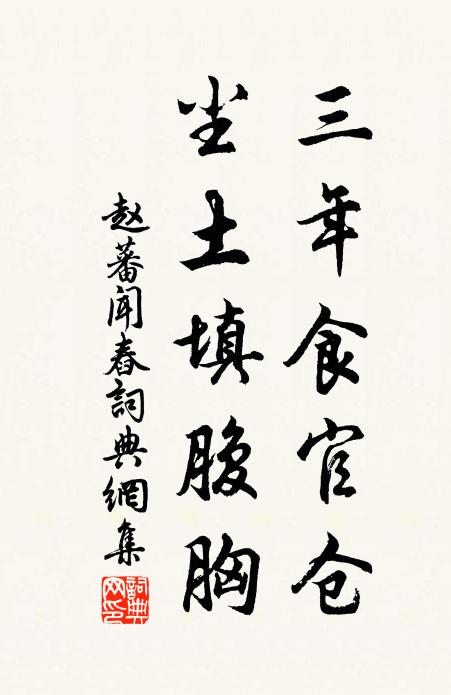 三年食官仓
尘土填腹胸
赵蕃闻舂词典網集
詞典网印